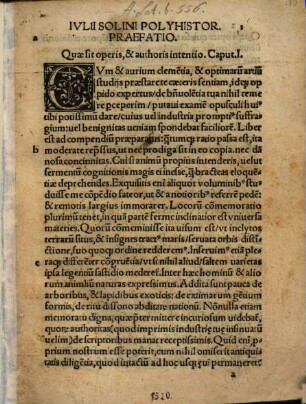 A.l.b. 556.
IVLII SOLINI POLYHISTOR.
PRAEFATIO.
Quæ sit operis, & authoris intentio. Caput.I.
CVm & aurium clemẽtia, & optimarũ artiũ
studijs præstare te cæteris sentiam, idq; op
pido expertus, de bñuolẽtia tua nihil teme
re peceperim, putaui examẽ opusculi huius
tibi potissimũ dare, cuius uel industria prompti' suffra
gium: uel benignitas ueniam spondebat faciliorẽ. Liber
est ad compendiũ præparatus: ꝗtumq; ratio passa est, ita
b moderate repssus, ut nec prodiga sit in eo copia, nec dã
nosa concinnitas. Cui si animũ propius intenderis, uelut
fermentũ cognitionis magis ei inesse, ꝗ bracteas eloquẽ
tiæ deprehendes. Exquisitis enĩ aliquot voluminib' stu
duisse me cõpẽdio fateor, ut & a notiorib' referrẽ pedẽ:
& remotis largius immorarer. Locorũ cõmemoratio
plurimũ tenet, in quã partẽ ferme inclinatior est vniuersa
materies. Quorũ cõmeminisse ita uisum est, vt inclytos
terrarũ situs, & insignes tract' maris, seruata orbis distin
ctione, suo quoq; ordine redderem'. Inseruim' etiã ple
raq; differẽter cõgruẽtia, vt si nihil aliud, saltem varietas
c ipsa legentiũ fastidio mederet'. Inter hæc hominũ & alio
rum animliũ naturas expressimus. Addita sunt pauca de
arboribus, & lapidibus exoticis: de extimarum gẽtium for
mis, de ritu dissono abditarum nationũ. Nõnulla etiam
memoratu digna, quæ prætermittere incuriosum uidebat',
quorũq; authoritas (quod inprimis industriæ tuæ insinuarũ
uelim) de scriptoribus manat receptissimis. Quid enĩ p
prium nostrum esse poterit, cum nihil omiserit antiqui
tatis diligẽtia, quod intactũ ad hoc usq; æui permaneret?
1520.